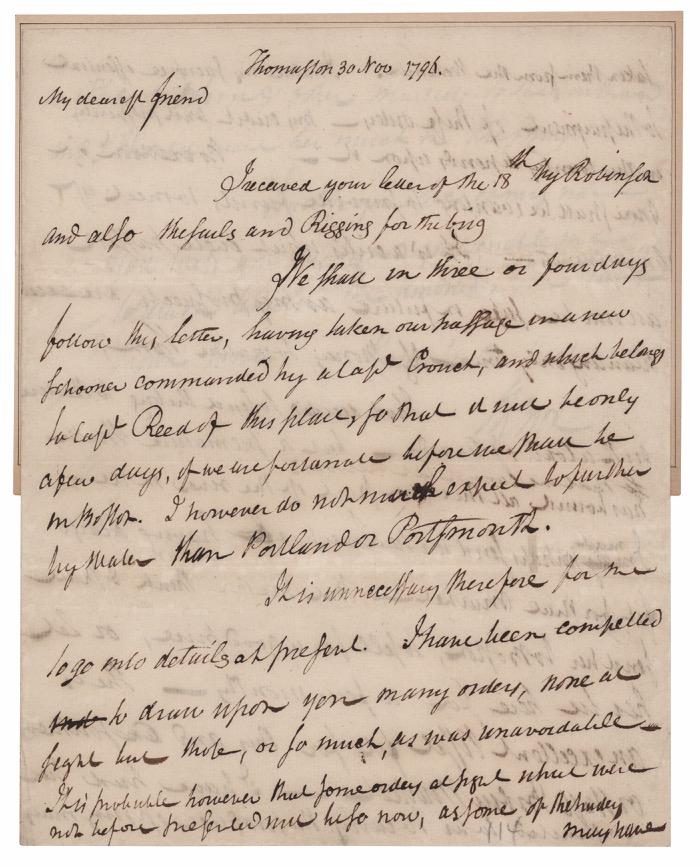 Thomaston 30 Nov 1796.
My dearest friend
I received your letter of the 18th by Robinson
and also the sails and Rigging for the brig
We shall in three or four days
follow this letter, having taken our passage in a new
schooner commanded by a Capt Crouch, and which belongs
to Capt Reed of this place, so that it will be only
a few days, if we are fortunate before we shall be
in Boston. I however do not much expect to further
by Water than Portland or Portsmouth.
It is unnecessary therefore for me
to go into details at present. I have been compelled
to draw upon you many orders, none at
sight but those, or so much, as was unavoidable
It is probable however that some orders at sight which were
not before presented will be so now, as some of the holders
may have